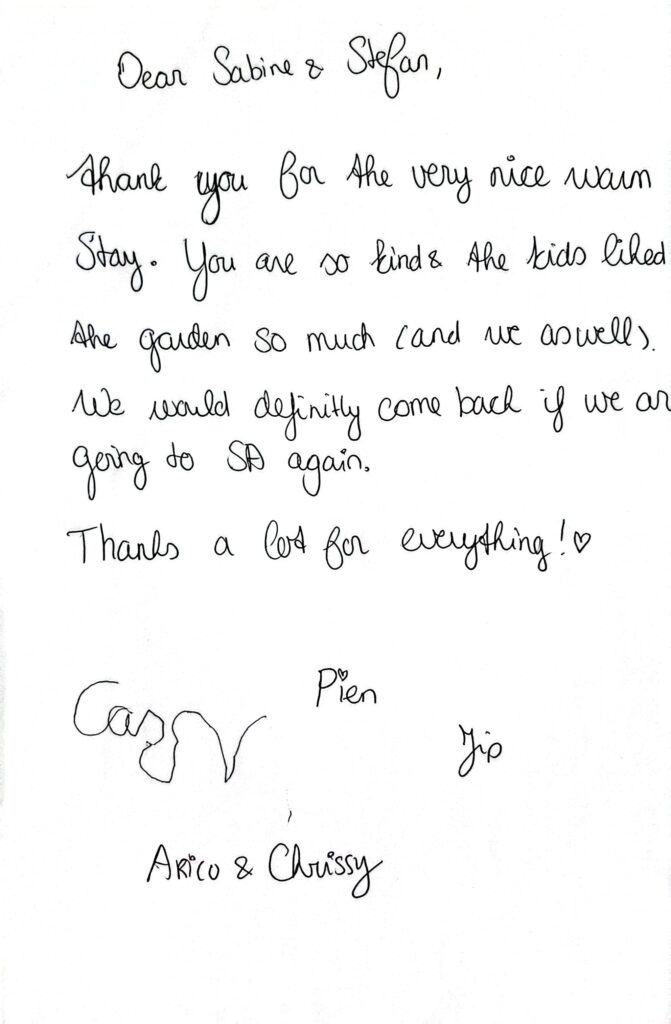 Dear Sabine & Stefan,
thank you for the very nice warm
Stay. You are so kind & the kids liked
the garden so much (and we aswell).
We would definitly come back if we ar
going to SA again.
Thanks a lot for everything! ♡
Pien
Jip
Arico & Chrissy